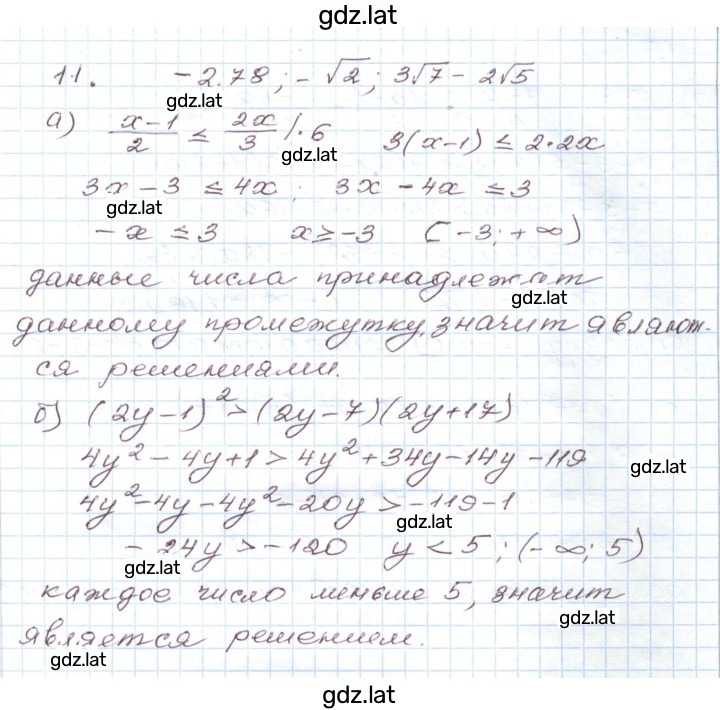 gdz.lat
11. -2.78; -√2; 3√7 - 2√5
gdz.lat
а) (x-1)/2 ≤ 2x/3 /·6 3(x-1) ≤ 2·2x
gdz.lat
3x - 3 ≤ 4x; 3x - 4x ≤ 3
gdz.lat
-x ≤ 3 x ≥ -3 [-3; +∞)
данные числа принадлежат
gdz.lat
данному промежутку, значит являют-
ся решениями.
б) (2y-1)² > (2y-7)(2y+17)
4y² - 4y + 1 > 4y² + 34y - 14y - 119
gdz.lat
4y² - 4y - 4y² - 20y > -119 - 1
gdz.lat
-24y > -120 y < 5; (-∞; 5)
gdz.lat
каждое число меньше 5, значит
gdz.lat
является решением.
gdz.lat
gdz.lat